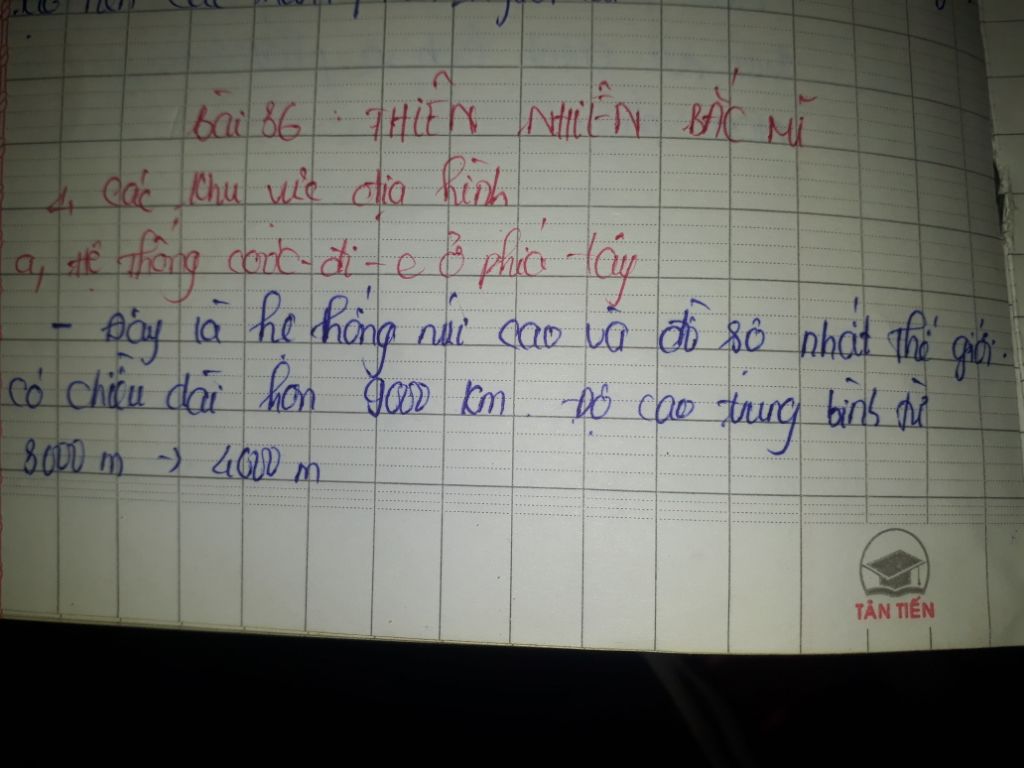 Bài 36 : THIÊN NHIÊN BẮC MĨ
1, Các khu vực địa hình
a, Hệ thống cooc-đi-e ở phía tây
- Đây là hệ thống núi cao và đồ sộ nhất thế giới.
có chiều dài hơn 9000 km. Độ cao trung bình từ
3000 m → 4000 m
TÂN TIẾN